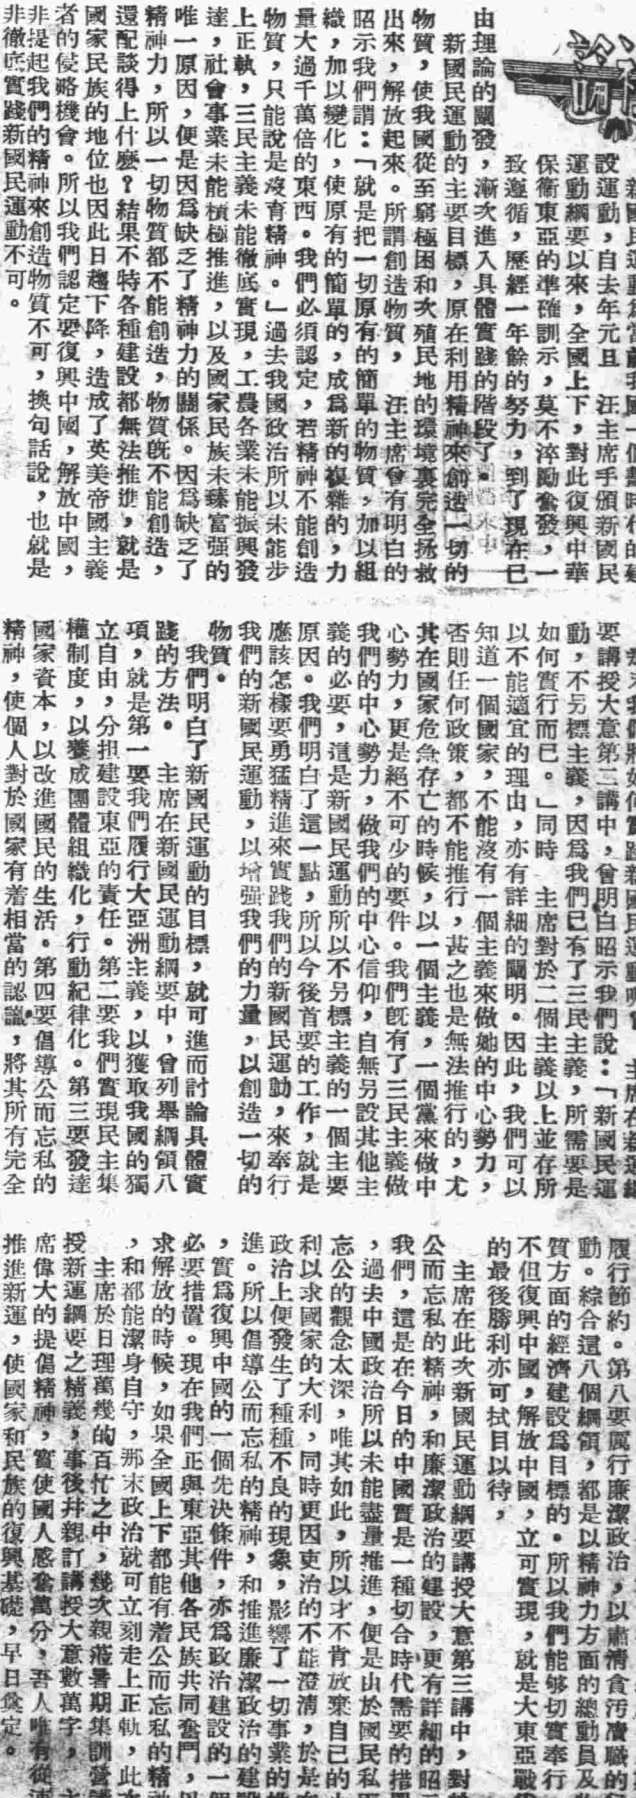 設運動，自去年元旦　汪主席手頒新國民
運動綱要以來，全國上下，對此復興中華
保衛東亞的準確訓示，莫不淬勵奮發，一
致遵循，歷經一年餘的努力，到了現在已
由理論的闡發，漸次進入具體實踐的階段了。
新國民運動的主要目標，原在利用精神來創造一切的
物質，使我國從至窮極困和次殖民地的環境裏完全拯救
出來，解放起來。所謂創造物質，　汪主席曾有明白的
昭示我們謂：「就是把一切原有的簡單的物質，加以組
織，加以變化，使原有的簡單的，成爲新的複雜的，力
量大過千萬倍的東西。我們必須認定，若精神不能創造
物質，只能說是沒有精神。」過去我國政治所以未能步
上正執，三民主義未能徹底實現，工農各業未能振興發
達，社會事業未能積極推進，以及國家民族未臻富强的
唯一原因，便是因爲缺乏了精神力的關係。因爲缺乏了
精神力，所以一切物質都不能創造，物質旣不能創造，
還配談得上什麽？結果不特各種建設都無法推進，就是
國家民族的地位也因此日趨下降，造成了英美帝國主義
者的侵略機會。所以我們認定要復興中國，解放中國，
非提起我們的精神來創造物質不可，換句話說，也就是
非徹底實踐新國民運動不可。
要講授大意第三講中，曾明白昭示我們說：「新國民運
動，不另標主義，因爲我們已有了三民主義，所需要是
如何實行而已。」同時　主席對於二個主義以上並存所
以不能適宜的理由，亦有詳細的闡明。因此，我們可以
知道一個國家，不能沒有一個主義來做她的中心勢力，
否則任何政策，都不能推行，甚之也是無法推行的，尤
其在國家危急存亡的時候，以一個主義，一個黨來做中
心勢力，更是絕不可少的要件。我們旣有了三民主義做
我們的中心勢力，做我們的中心信仰，自無另設其他主
義的必要，這是新國民運動所以不另標主義的一個主要
原因。我們明白了這一點，所以今後首要的工作，就是
應該怎樣要勇猛精進來實踐我們的新國民運動，來奉行
我們的新國民運動，以增强我們的力量，以創造一切的
物質。
我們明白了新國民運動的目標，就可進而討論具體實
踐的方法。　主席在新國民運動綱要中，曾列舉綱領八
項，就是第一要我們履行大亞洲主義，以獲取我國的獨
立自由，分担建設東亞的責任。第二要我們實現民主集
權制度，以養成團體組織化，行動紀律化。第三要發達
國家資本，以改進國民的生活。第四要倡導公而忘私的
精神，使個人對於國家有着相當的認識，將其所有完全
履行節約。第八要厲行廉潔政治，以肅清貪汚瀆職的
動。綜合這八個綱領，都是以精神力方面的總動員及
質方面的經濟建設爲目標的。所以我們能够切實奉行
不但復興中國，解放中國，立可實現，就是大東亞戰
的最後勝利亦可拭目以待，
主席在此次新國民運動綱要講授大意第三講中，對
公而忘私的精神，和廉潔政治的建設，更有詳細的昭
我們，這是在今日的中國實是一種切合時代需要的措
，過去中國政治所以未能盡量推進，便是由於國民私
忘公的觀念太深，唯其如此，所以才不肯放棄自己的
利以求國家的大利，同時更因吏治的不能澄清，於是
政治上便發生了種種不良的現象，影響了一切事業的
進。所以倡導公而忘私的精神，和推進廉潔政治的建
，實爲復興中國的一個先決條件，亦爲政治建設的一個
必要措置。現在我們正與東亞其他各民族共同奮鬥，
求解放的時候，如果全國上下都能有着公而忘私的精
，和都能潔身自守，那末政治就可立刻走上正軌，此
主席於日理萬幾的百忙之中，幾次親蒞暑期集訓營
授新運綱要之精義，事後并親訂講授大意數萬字，
席偉大的提倡精神，實使國人感奮萬分，吾人唯有從
推進新運，使國家和民族的復興基礎，早日奠定。